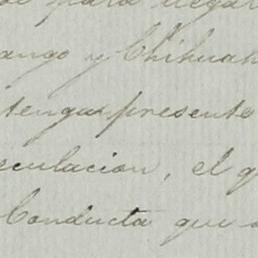 para llegar
ango y Chihuah
tenga presente
eculacion, el q
Conducta que